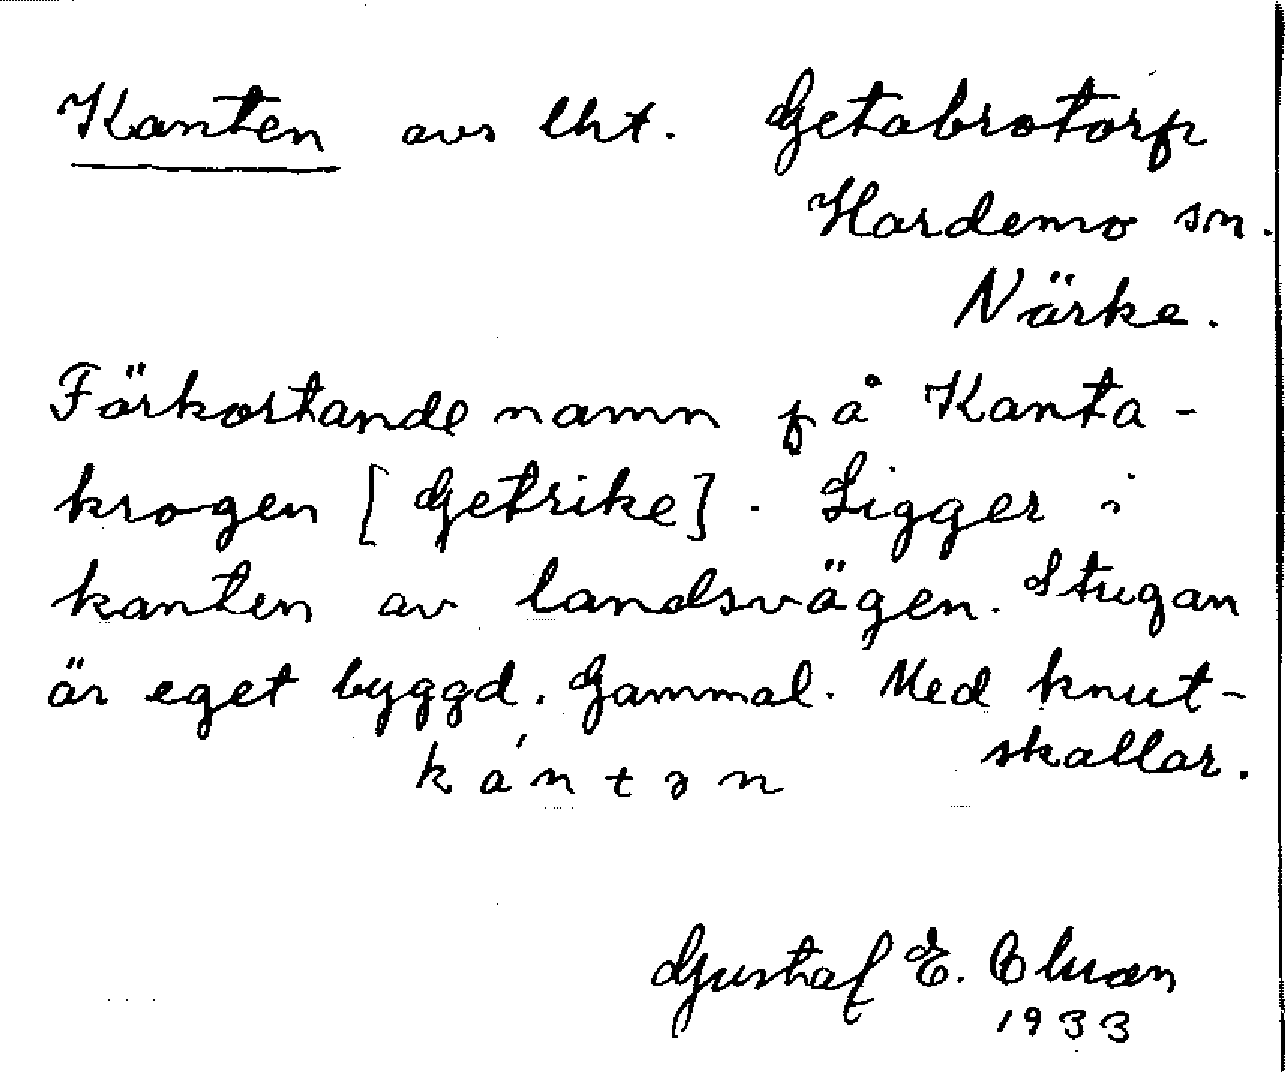 Kanten avs lht. Getabrotorp
Hardemo sn.
Närke.
Förkortande namn på Kanta-
krogen [Getrike]. Ligger i
kanten av landsvägen. Stugan
är eget byggd. Gammal. Med knut-
skallar.
kántən
Gustaf E.
1933